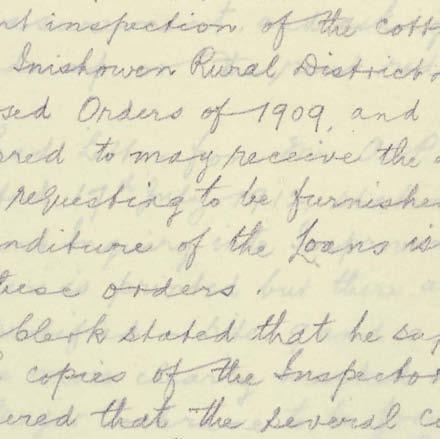 nt inspection of the cott
Inishowen Rural District
sed Orders of 1909, and
rred to may receive the
requesting to be furnishe
nditure of the Loans is
these orders.
Clerk stated that he sup
copies of the Inspector
ered that the several co